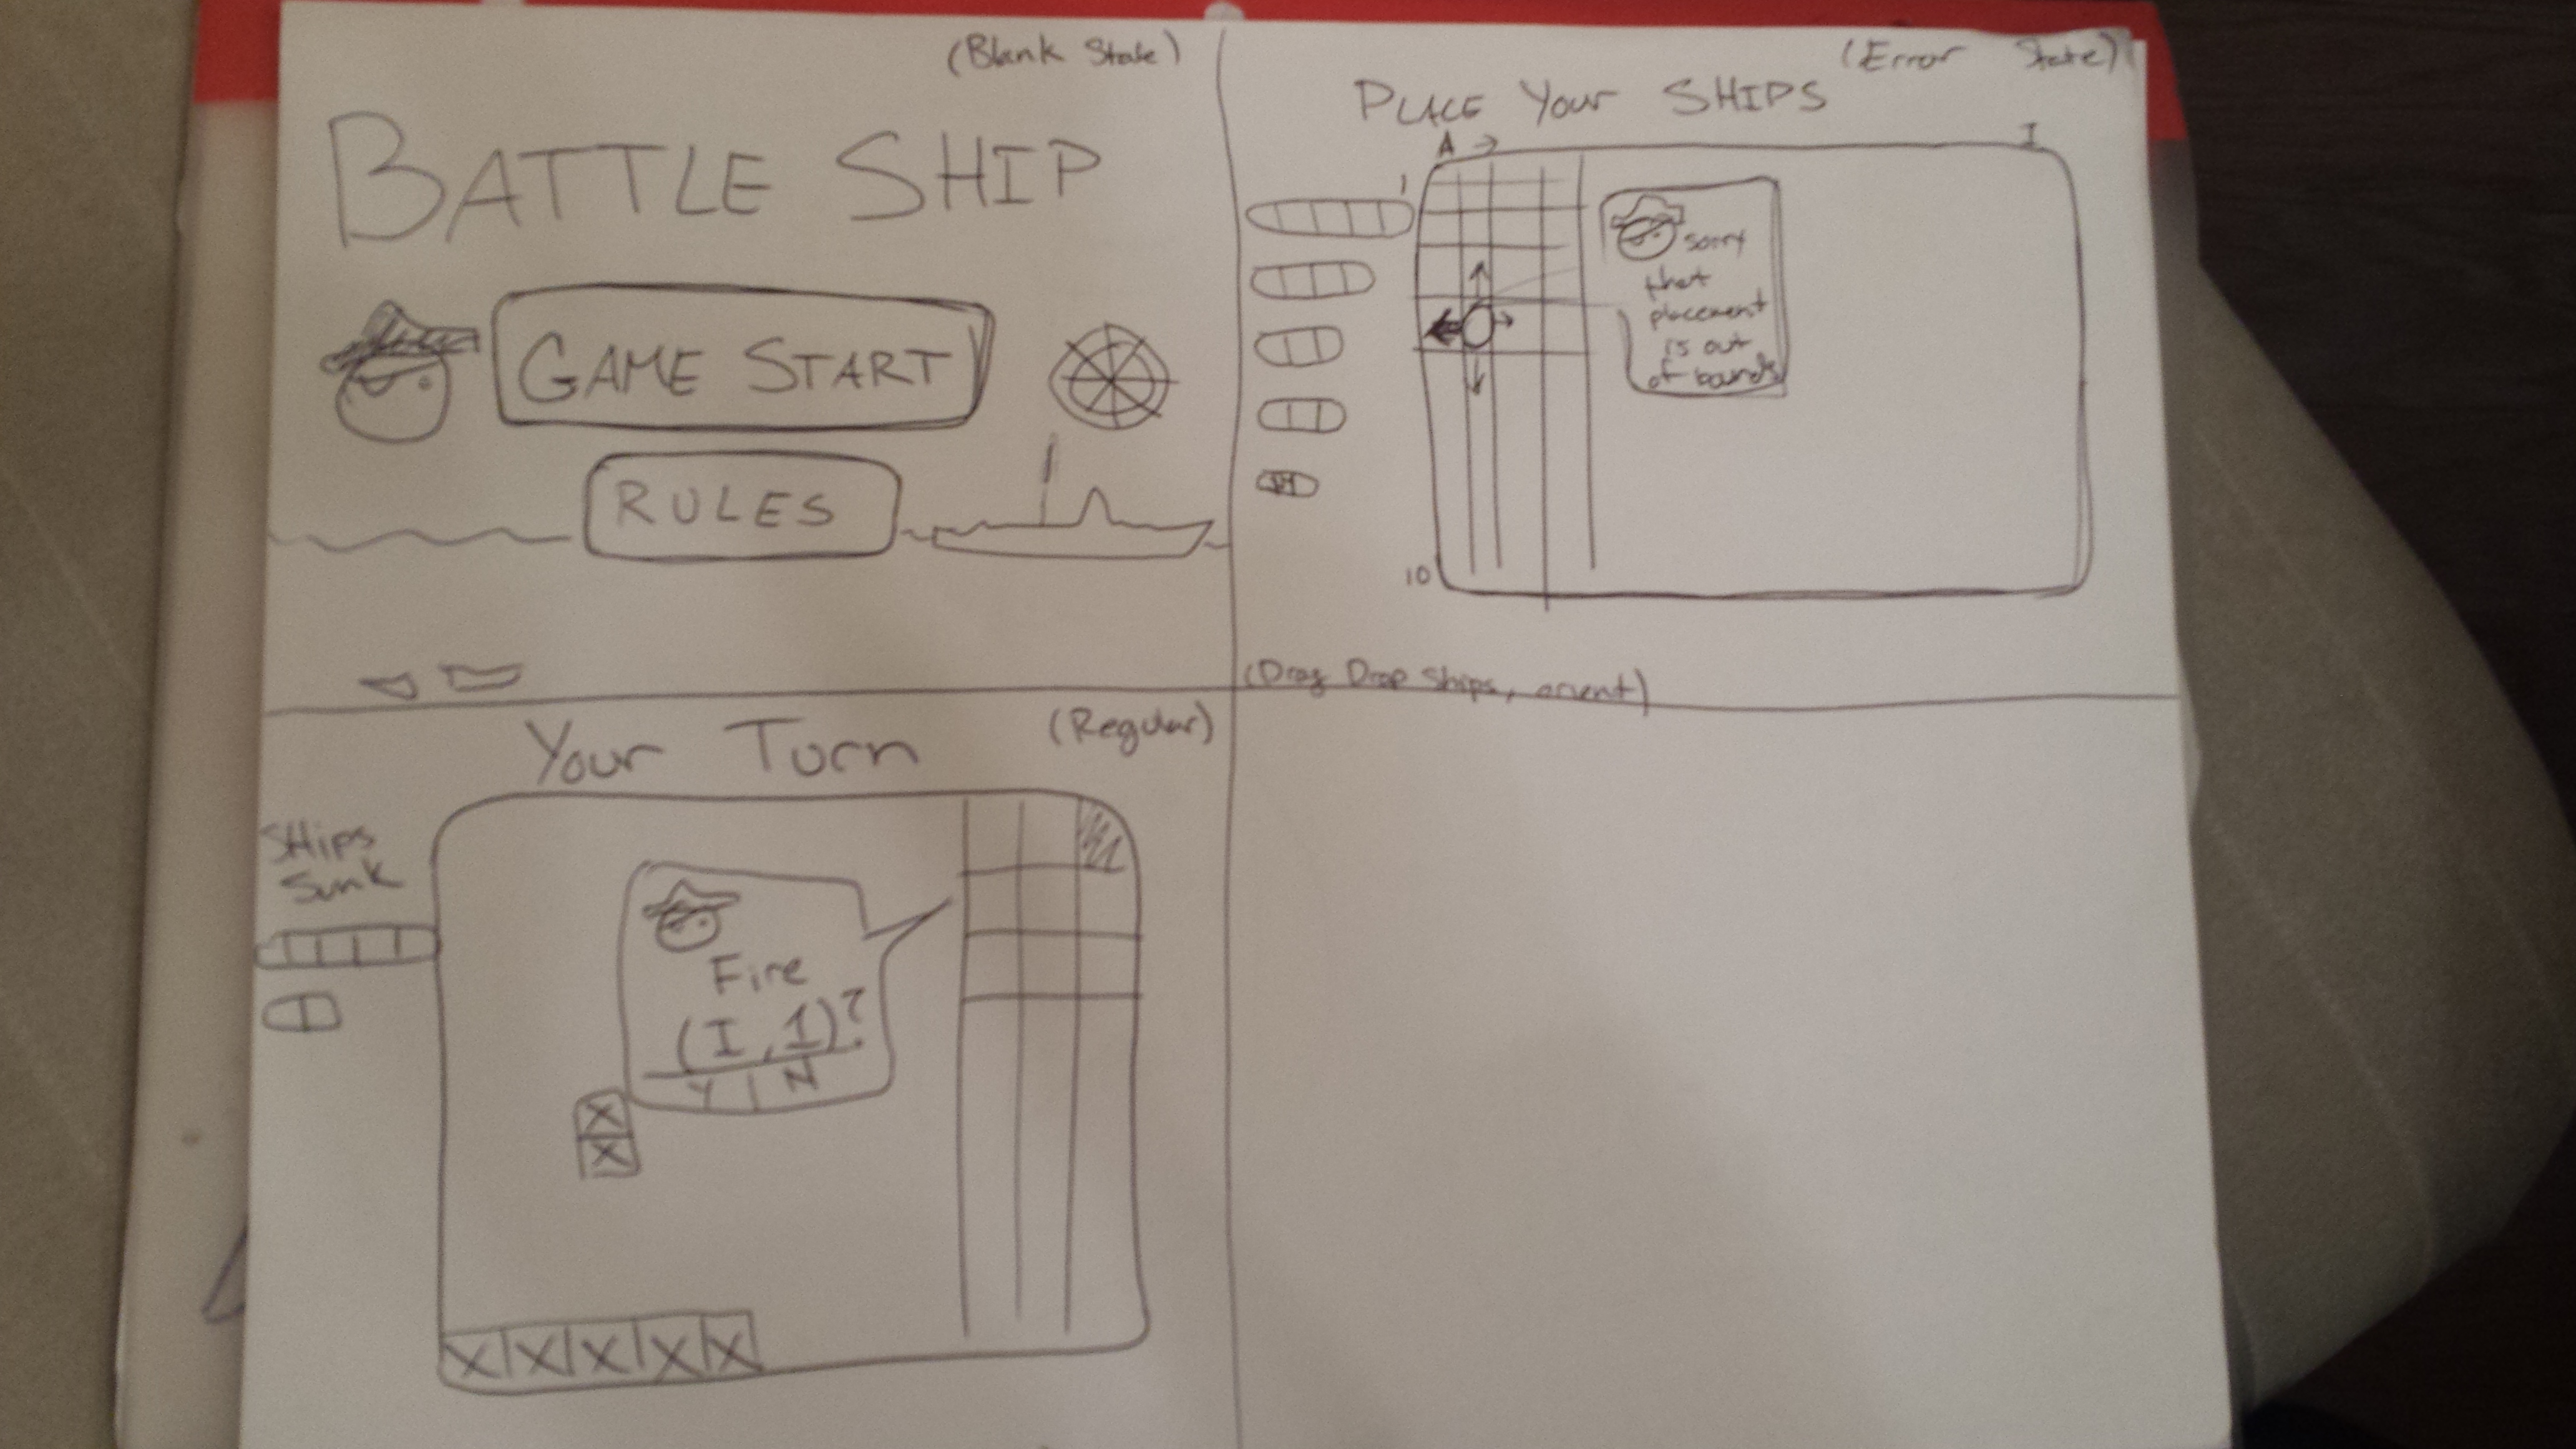 (Blank State)
BATTLE SHIP
GAME START
RULES
(Error State)
PLACE Your SHIPS
A I
1
sorry
that
placement
is out
of bounds
10
(Drag Drop Ships, orient)
Your Turn
(Regular)
SHips
Sunk
Fire
(I, 1)?
Y | N
X
X
X X X X X